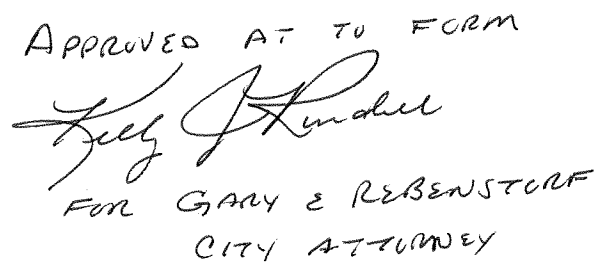 APPROVED AT TO FORM
Kelly J
FOR GARY E REBENSTORF
CITY ATTORNEY